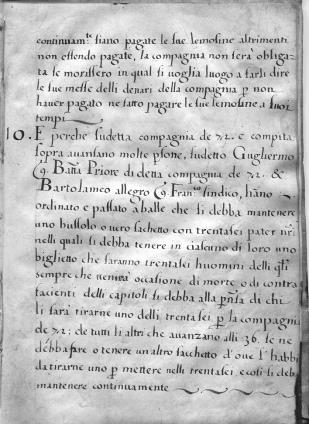 continuam.te siano pagate le sue lemosine altrimenti
non essendo pagate, la compagnia non serà obliga-
ta se morissero in qual si voglia luogo a farli dire
le sue messe delli denari della compagnia p non
haver pagato ne fatto pagare le sue lemosine a suoi
tempi
10. E perche sudetta compagnia de 72. e compita
sopra avansano molte psone, sudetto Guglhermo
Batta Priore di detta compagnia de 72. &
Bartolameo allegro Fran.co sindico, hãno
ordinato e passato a balle che si debba mantenere
uno bussolo o vero sachetto con trentasei pater nri
nelli quali si debba tenere in ciascuno di loro uno
biglietto che saranno trentasei huomini delli qsti
sempre che venirà occasione di morte o di contra
facienti delli capitoli si debba alla pñsa di chi
li sarà tirarne uno delli trentasei p la compagni
de 72; de tutti li altri che avanzano alli 36. se ne
debba fare o tenere un altro sacchetto d'ove s' habbi
da tirarne uno p mettere nelli trentasei, e così si deb
mantenere continuamente